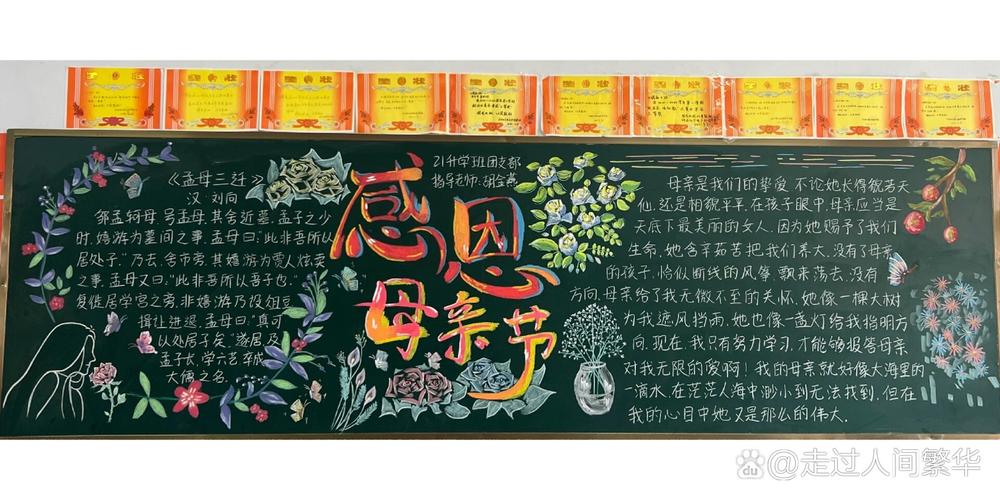 奖状
奖状
奖状
奖状
奖状
奖状
奖状
奖状
奖状
奖状
《孟母三迁》
汉·刘向
邹孟轲母,号孟母,其舍近墓,孟子之少
时,嬉游为墓间之事,孟母曰:“此非吾所以
居处子”乃去,舍市旁,其嬉游为贾人炫卖
之事,孟母又曰:“此非吾所以吾子也.”
复徙居学宫之旁,其嬉游乃设俎豆
揖让进退,孟母曰:“真可
以处居子矣.”遂居及
孟子长,学六艺,卒成
大儒之名.
21升学班团支部
指导老师:胡宝燕
感恩
母亲节
母亲是我们的挚爱,不论她长得貌若天
仙,还是相貌平平,在孩子眼中,母亲应当是
天底下最美丽的女人.因为她赐予了我们
生命,她含辛茹苦把我们养大,没有了母亲
的孩子,恰似断线的风筝,飘来荡去,没有
方向,母亲给了我无微不至的关怀,她像一棵大树
为我遮风挡雨,她也像一盏灯给我指明方
向.现在,我只有努力学习,才能够报答母亲
对我无限的爱啊!我的母亲就好像大海里的
一滴水,在茫茫人海中渺小到无法找到,但在
我的心目中她又是那么的伟大.
du @走过人间繁华